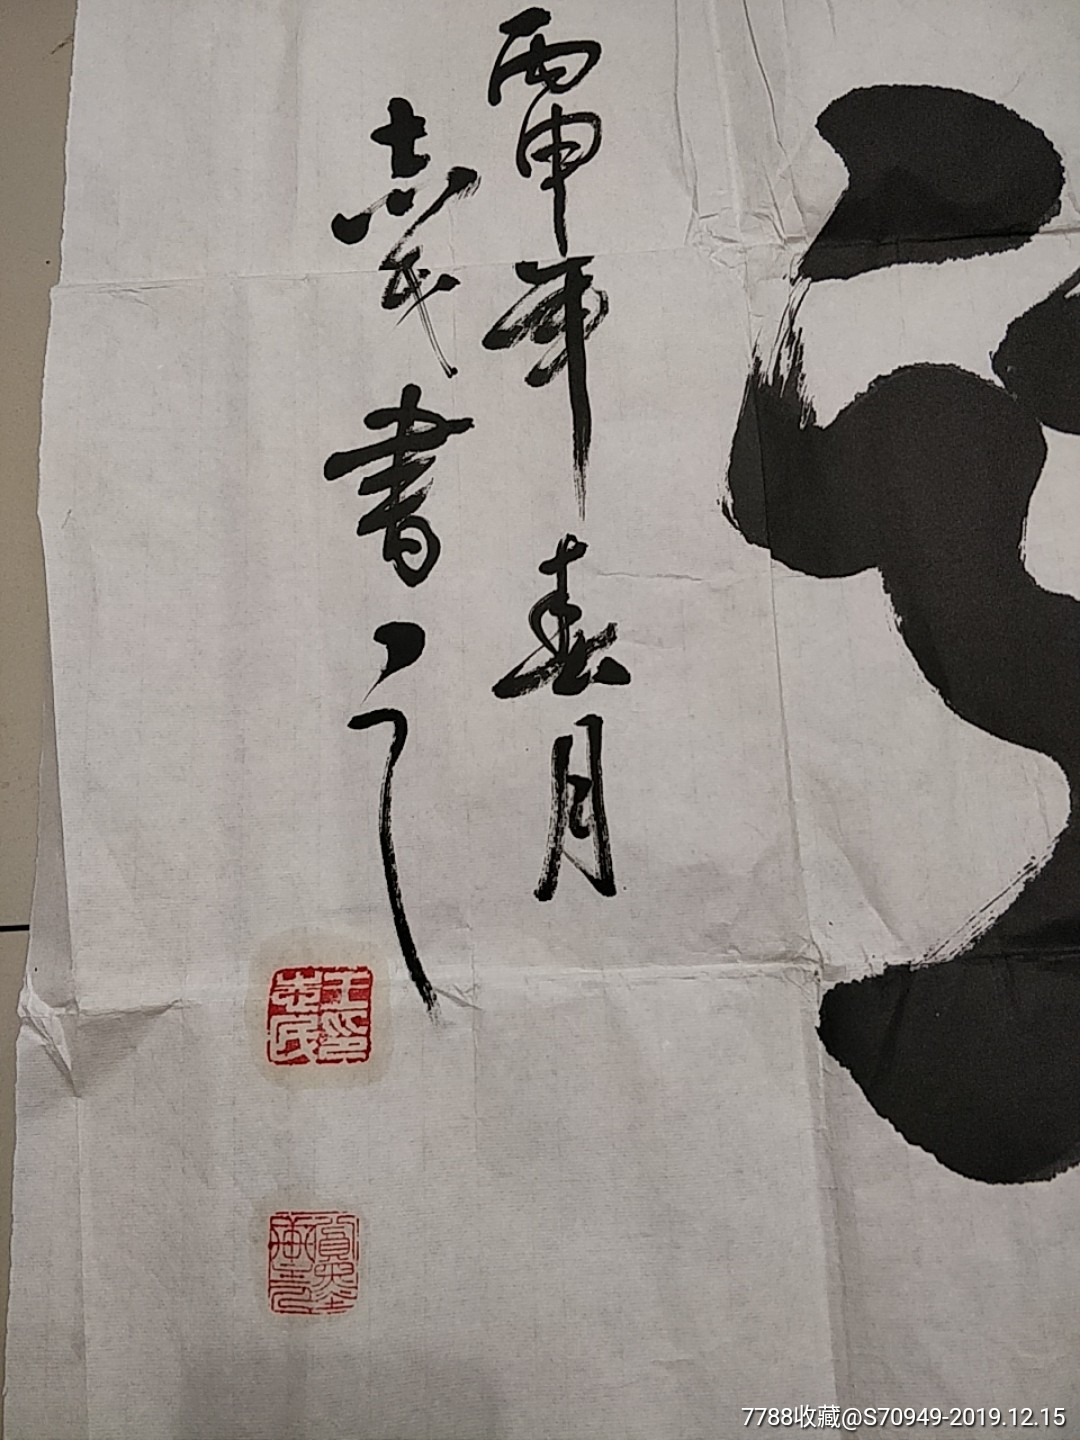 丙申年春月
志民書之
王印志民
7788收藏@S70949-2019.12.15